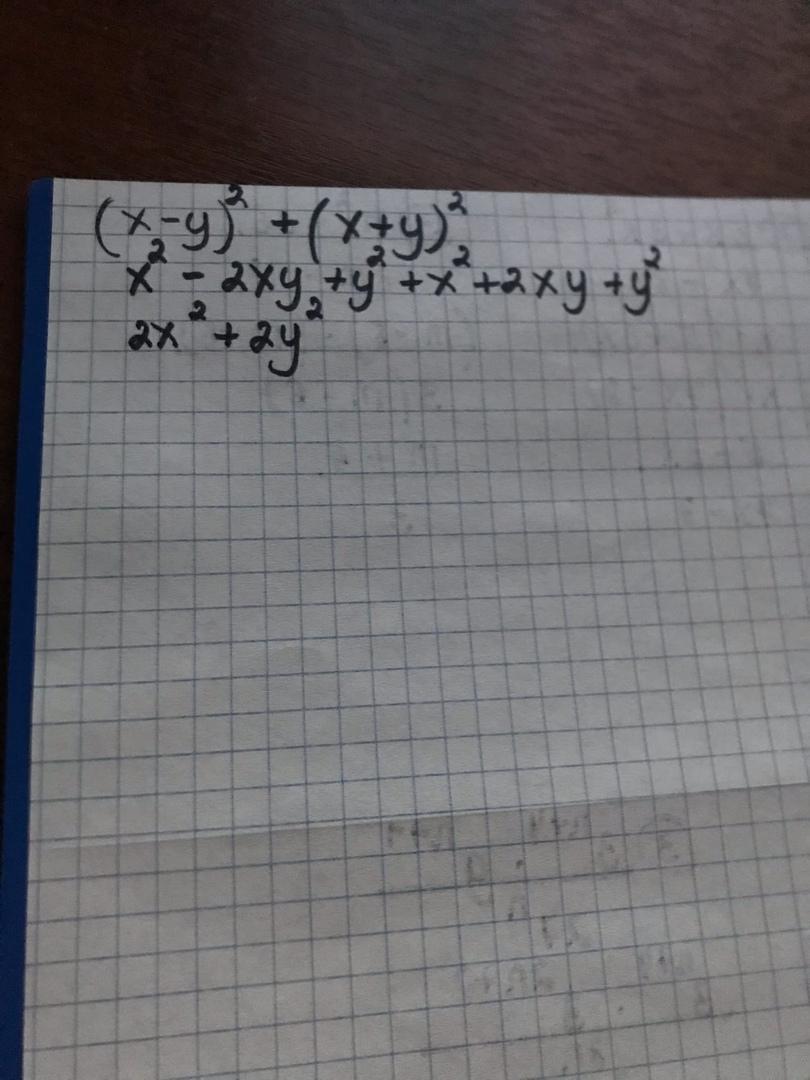 (x-y)² + (x+y)²
x² - 2xy + y² + x² + 2xy + y²
2x² + 2y²